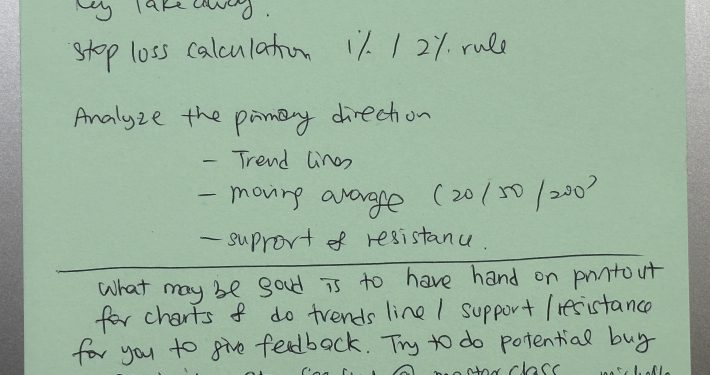 Key Take away.
Stop loss calculation 1% / 2% rule
Analyze the primary direction
- Trend lines
- moving average (20/50/200)
- support & resistance.
What may be good is to have hand on printout
for charts & do trends line / support / resistance
for you to give feedback. Try to do potential buy
@ master class michelle